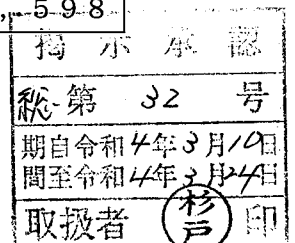 ,598
掲示承認
総第 32 号
期自令和4年3月10日
間至令和4年3月24日
取扱者 杉戸 印